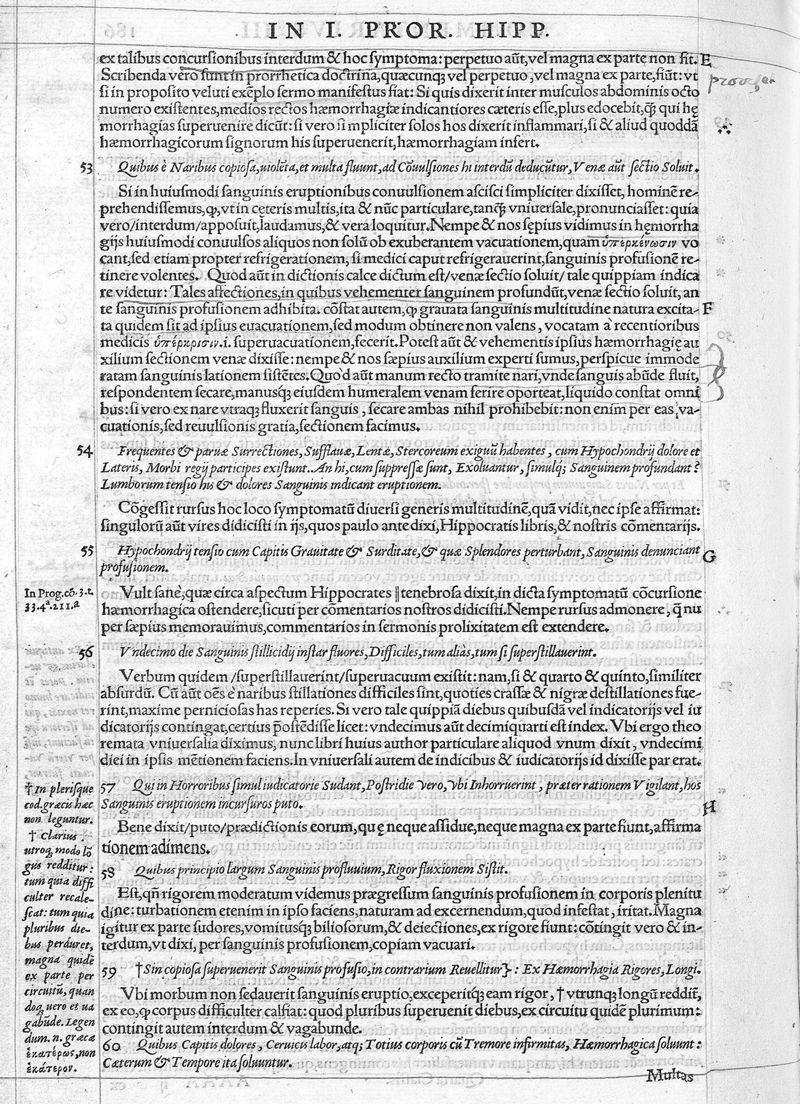 IN I. PROR. HIPP.
ex talibus concursionibus interdum & hoc symptoma: perpetuo aūt, vel magna ex parte non fit. E
Scribenda vero sunt in prorrhetica doctrina, quæcunqꝫ vel perpetuo, vel magna ex parte, fiūt: vt
si in proposito veluti exēplo sermo manifestus fiat: Si quis dixerit inter musculos abdominis octo
numero existentes, medios rectos hæmorrhagiæ indicantiores cæteris esse, plus edocebit, ꝗ̃ qui hę
morrhagias superuenire dicūt: si vero simpliciter solos hos dixerit inflammari, si & aliud quoddā
hæmorrhagicorum signorum his superuenerit, hæmorrhagiam infert.
53 Quibus è Naribus copiosa, uiolēta, et multa fluunt, ad Cōuulsiones hi interdū deducūtur, Venæ aūt sectio Soluit.
Si in huiusmodi sanguinis eruptionibus conuulsionem ascisci simpliciter dixisset, hominē re-
prehendissemus, ꝙ, vt in cęteris multis, ita & nūc particulare, tanꝗ̃ vniuersale, pronunciasset: quia
vero/interdum/apposuit, laudamus, & vera loquitur. Nempe & nos sępius vidimus in hęmorrha
gijs huiusmodi conuulsos aliquos non solū ob exuberantem vacuationem, quam ὑπερκένωσιν vo
cant, sed etiam propter refrigerationem, si medici caput refrigerauerint, sanguinis profusionē re-
tinere volentes. Quod aūt in dictionis calce dictum est/venæ sectio soluit/tale quippiam indica
re videtur: Tales affectiones, in quibus vehementer sanguinem profundūt, venæ sectio soluit, an
te sanguinis profusionem adhibita. cōstat autem, ꝙ grauata sanguinis multitudine natura excita- F
ta quidem sit ad ipsius euacuationem, sed modum obtinere non valens, vocatam à recentioribus
medicis ὑπέρκρισιν .i. superuacuationem, fecerit. Potest aūt & vehementis ipsius hæmorrhagię au
xilium sectionem venæ dixisse: nempe & nos sæpius auxilium experti sumus, perspicue immode
ratam sanguinis lationem sistētes. Quod aūt manum recto tramite nari, vnde sanguis abūde fluit,
respondentem secare, manusqꝫ eiusdem humeralem venam ferire oporteat, liquido constat omni
bus: si vero ex nare vtraqꝫ fluxerit sanguis, secare ambas nihil prohibebit: non enim per eas va-
cuationis, sed reuulsionis gratia, sectionem facimus.
54 Frequentes & paruæ Surrectiones, Sufflauæ, Lentæ, Stercoreum exiguū habentes, cum Hypochondrij dolore et
Lateris, Morbi regij participes existunt. An hi, cum suppressæ sunt, Exoluantur, simulqꝫ Sanguinem profundant?
Lumborum tensio his & dolores Sanguinis indicant eruptionem.
Cōgessit rursus hoc loco symptomatū diuersi generis multitudinē, quā vidit, nec ipse affirmat:
singulorū aūt vires didicisti in ijs, quos paulo ante dixi, Hippocratis libris, & nostris cōmentarijs.
55 Hypochondrij tensio cum Capitis Grauitate & Surditate, & quæ Splendores perturbant, Sanguinis denunciant G
profusionem.
In Prog. cō. 3. t.
33. 4ᵃ. 211. a
Vult sanè, quæ circa aspectum Hippocrates ‖tenebrosa dixit, in dicta symptomatū cōcursione
hæmorrhagica ostendere, sicuti per cōmentarios nostros didicisti. Nempe rursus admonere, ꝗ̄ nu
per sæpius memorauimus, commentarios in sermonis prolixitatem est extendere.
56 Vndecimo die Sanguinis stillicidij instar fluores, Difficiles, tum aliàs, tum si superstillauerint.
Verbum quidem /superstillauerint/superuacuum existit: nam, si & quarto & quinto, similiter
absurdū. Cū aūt oēs è naribus stillationes difficiles sint, quoties crassæ & nigræ destillationes fue-
rint, maxime perniciosas has reperies. Si vero tale quippiā diebus quibusdā vel indicatorijs vel iu
dicatorijs contingat, certius p̄ostēdisse licet: vndecimus aūt decimiquarti est index. Vbi ergo theo
remata vniuersalia diximus, nunc libri huius author particulare aliquod vnum dixit, vndecimi
diei in ipsis mētionem faciens. In vniuersali autem de indicibus & iudicatorijs id dixisse par erat.
57 Qui in Horroribus simul iudicatorie Sudant, Postridie vero, vbi Inhorruerint, præter rationem Vigilant, hos
Sanguinis eruptionem incursuros puto. H
Bene dixit/puto/prædictionis eorum, quę neque assidue, neque magna ex parte fiunt, affirma
tionem adimens.
58 Quibus principio largum Sanguinis profluuium, Rigor fluxionem Sistit.
Est, qñ rigorem moderatum videmus prægressum sanguinis profusionem in corporis plenitu
dine: turbationem etenim in ipso faciens, naturam ad excernendum, quod infestat, irritat. Magna
igitur ex parte sudores, vomitusqꝫ biliosorum, & deiectiones, ex rigore fiunt: cōtingit vero & in-
terdum, vt dixi, per sanguinis profusionem, copiam vacuari.
59 †Sin copiosa superuenerit Sanguinis profusio, in contrarium Reuellitur}: Ex Hæmorrhagia Rigores, Longi.
Vbi morbum non sedauerit sanguinis eruptio, exceperitqꝫ eam rigor, † vtrunqꝫ longū reddit,
ex eo, ꝙ corpus difficulter calfiat: quod pluribus superuenit diebus, ex circuitu quidē plurimum:
contingit autem interdum & vagabunde.
60 Quibus Capitis dolores, Ceruicis labor, atqꝫ Totius corporis cū Tremore infirmitas, Hæmorrhagica soluunt:
Cæterum & Tempore ita soluuntur.
Multas
† In plerisque
cod. græcis hæc
non leguntur.
† Clarius
utroqꝫ modo lō
gus redditur:
tum quia diffi
culter recale-
scat: tum quia
pluribus die-
bus perduret,
magna quidē
ex parte per
circuitū, quan
doqꝫ uero et ua
gabūde. Legen
dum .n. græcæ
ἑκατέρως, non
ἑκάτερον.